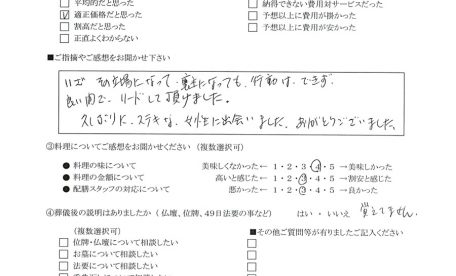 □ 平均的だと思った □ 納得できない費用対サービスだった
☑ 適正価格だと思った □ 予想以上に費用が掛かった
□ 割高だと思った □ 予想以上に費用が安かった
□ 正直よくわからない
■ご指摘やご感想をお聞かせ下さい
いざ その立場になって、喪主になっても、行動は、できず、
良い間で、リードして頂けました。
久しぶりに、ステキな、女性に出会いました。ありがとうございました。
③料理についてご感想をお聞かせください（複数選択可）
● 料理の味について 美味しくなかった← 1・2・3・4・5 →美味しかった
● 料理の金額について 高いと感じた← 1・2・3・4・5 →割安と感じた
● 配膳スタッフの対応について 悪かった← 1・2・3・4・5 →良かった
④葬儀後の説明はありましたか（仏壇、位牌、49日法要の事など） はい ・ いいえ 覚えてません。
（複数選択可） ■その他ご質問等が有りましたらご記入ください
位牌・仏壇について相談したい □
お墓について相談したい □
法要について相談したい □